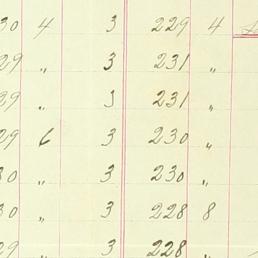 30 4 3 229 4
29 " 3 231 "
29 " 3 231 "
29 6 3 230 "
30 " 3 230 "
30 " 3 228 8
29 " 3 228 "